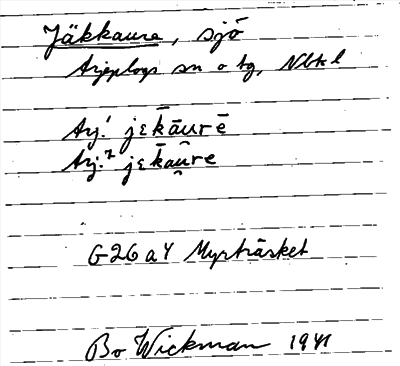 Jäkkaure, sjö
Arjeplogs sn o tg, Nbtl
Arj.¹ jɛk̄āurē
Arj.² jɛk̄aû̯re
G26a4 Myrträsket
Bo Wickman 1941